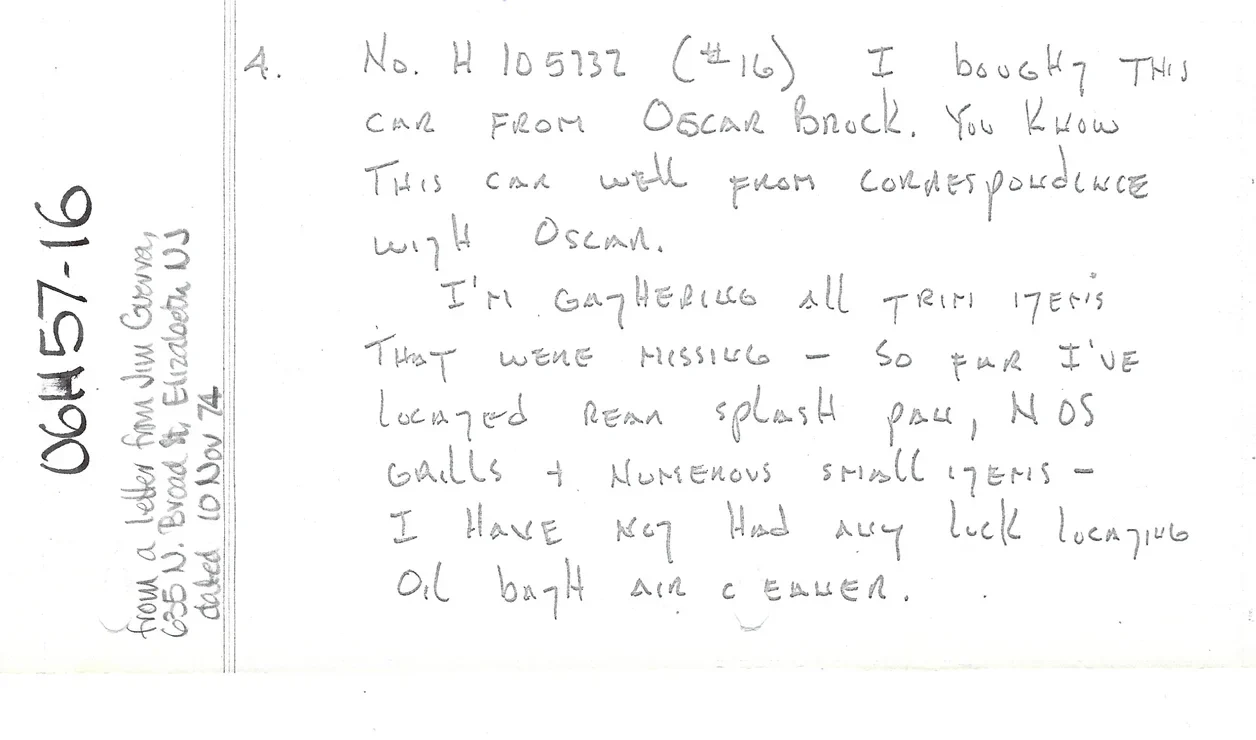 4. No. H 105732 (#16) I bought THIS
CAR FROM OSCAR Brock. You KNOW
THIS CAR well FROM CORRESPONdENCE
WITH OSCAR.
I'M GATHERING all TRIM ITEMS
THAT WERE MISSING – SO FAR I'VE
locATEd REAR SplASH pAN, N OS
GRILLS + NUMEROUS SMAll ITEMS –
I HAVE NOT HAd ANY lUCK locATING
Oil bATH AIR C EANER.
06H57-16
from a letter from Jim Guerra,
635 N. Broad St, Elizabeth NJ
dated 10 Nov 74